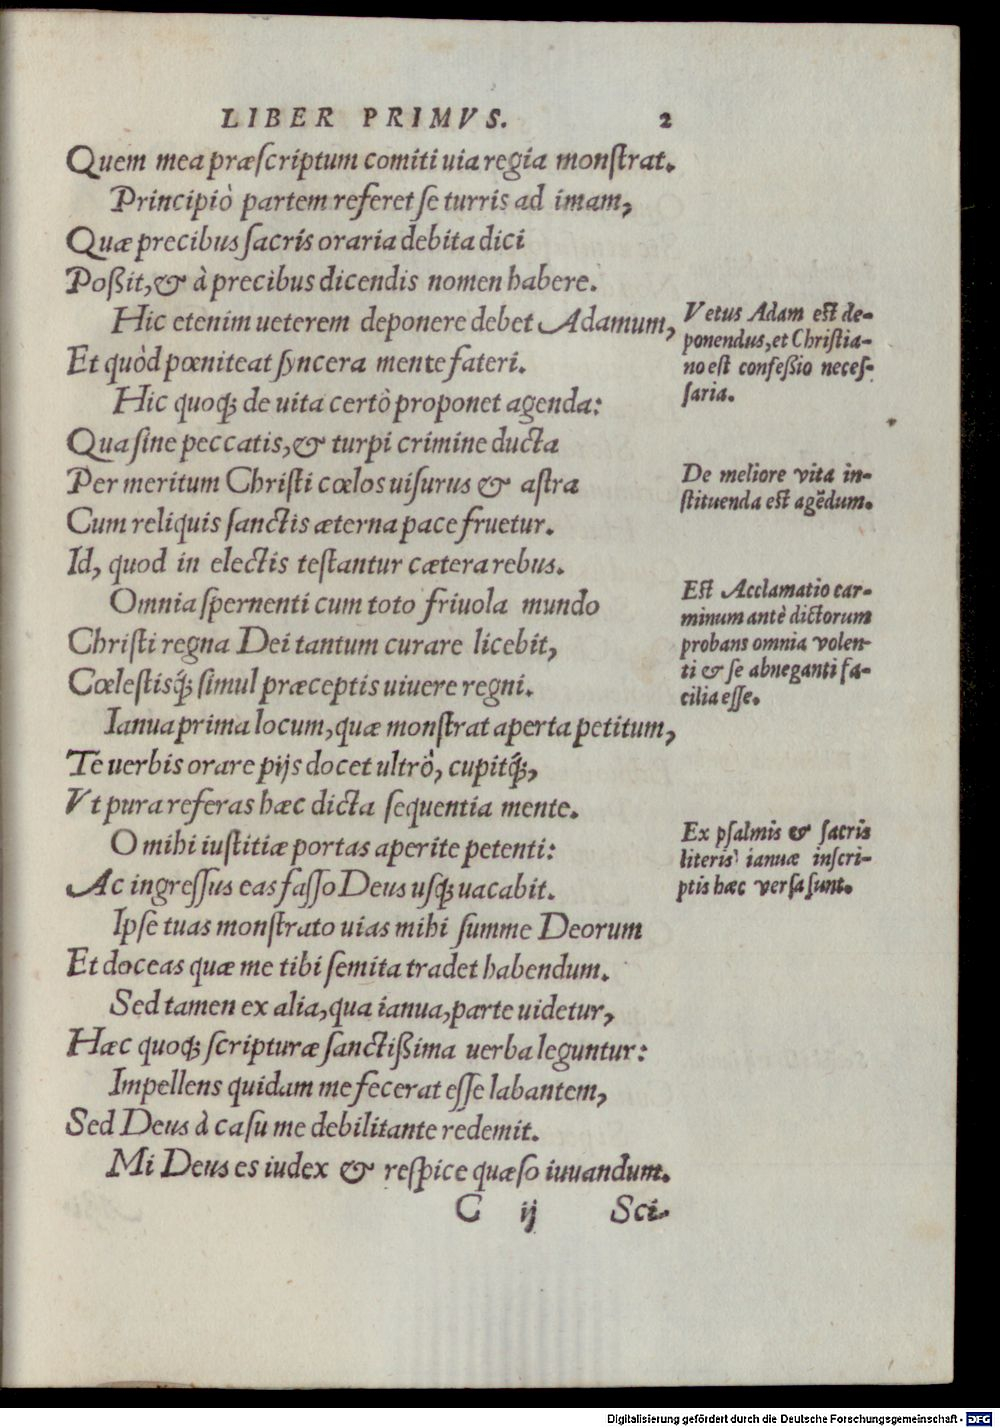 LIBER PRIMVS. 2
Quem mea præscriptum comiti uia regia monstrat.
Principiò partem referet se turris ad imam,
Quæ precibus sacris oraria debita dici
Poßit, & à precibus dicendis nomen habere.
Hic etenim ueterem deponere debet Adamum,
Et quòd pœniteat syncera mente fateri.
Hic quoq; de uita certò proponet agenda:
Qua sine peccatis, & turpi crimine ducta
Per meritum Christi cœlos uisurus & astra
Cum reliquis sanctis æterna pace fruetur.
Id, quod in electis testantur cætera rebus.
Omnia spernenti cum toto friuola mundo
Christi regna Dei tantum curare licebit,
Cœlestisq́; simul præceptis uiuere regni.
Ianua prima locum, quæ monstrat aperta petitum,
Te uerbis orare pijs docet ultrò, cupitq́;,
Vt pura referas hæc dicta sequentia mente.
O mihi iustitiæ portas aperite petenti:
Ac ingressus eas fasso Deus usq; uacabit.
Ipse tuas monstrato uias mihi summe Deorum
Et doceas quæ me tibi semita tradet habendum.
Sed tamen ex alia, qua ianua, parte uidetur,
Hæc quoq; scripturæ sanctißima uerba leguntur:
Impellens quidam me fecerat esse labantem,
Sed Deus à casu me debilitante redemit.
Mi Deus es iudex & respice quæso iuuandum.
C ij Sci-
Vetus Adam est de-
ponendus, et Christia-
no est confeßio neces-
saria.
De meliore vita in-
stituenda est agẽdum.
Est Acclamatio car-
minum antè dictorum
probans omnia volen-
ti & se abneganti fa-
cilia esse.
Ex psalmis & sacris
literis ianuæ inscri-
ptis hæc versa sunt.
Digitalisierung gefördert durch die Deutsche Forschungsgemeinschaft - DFG